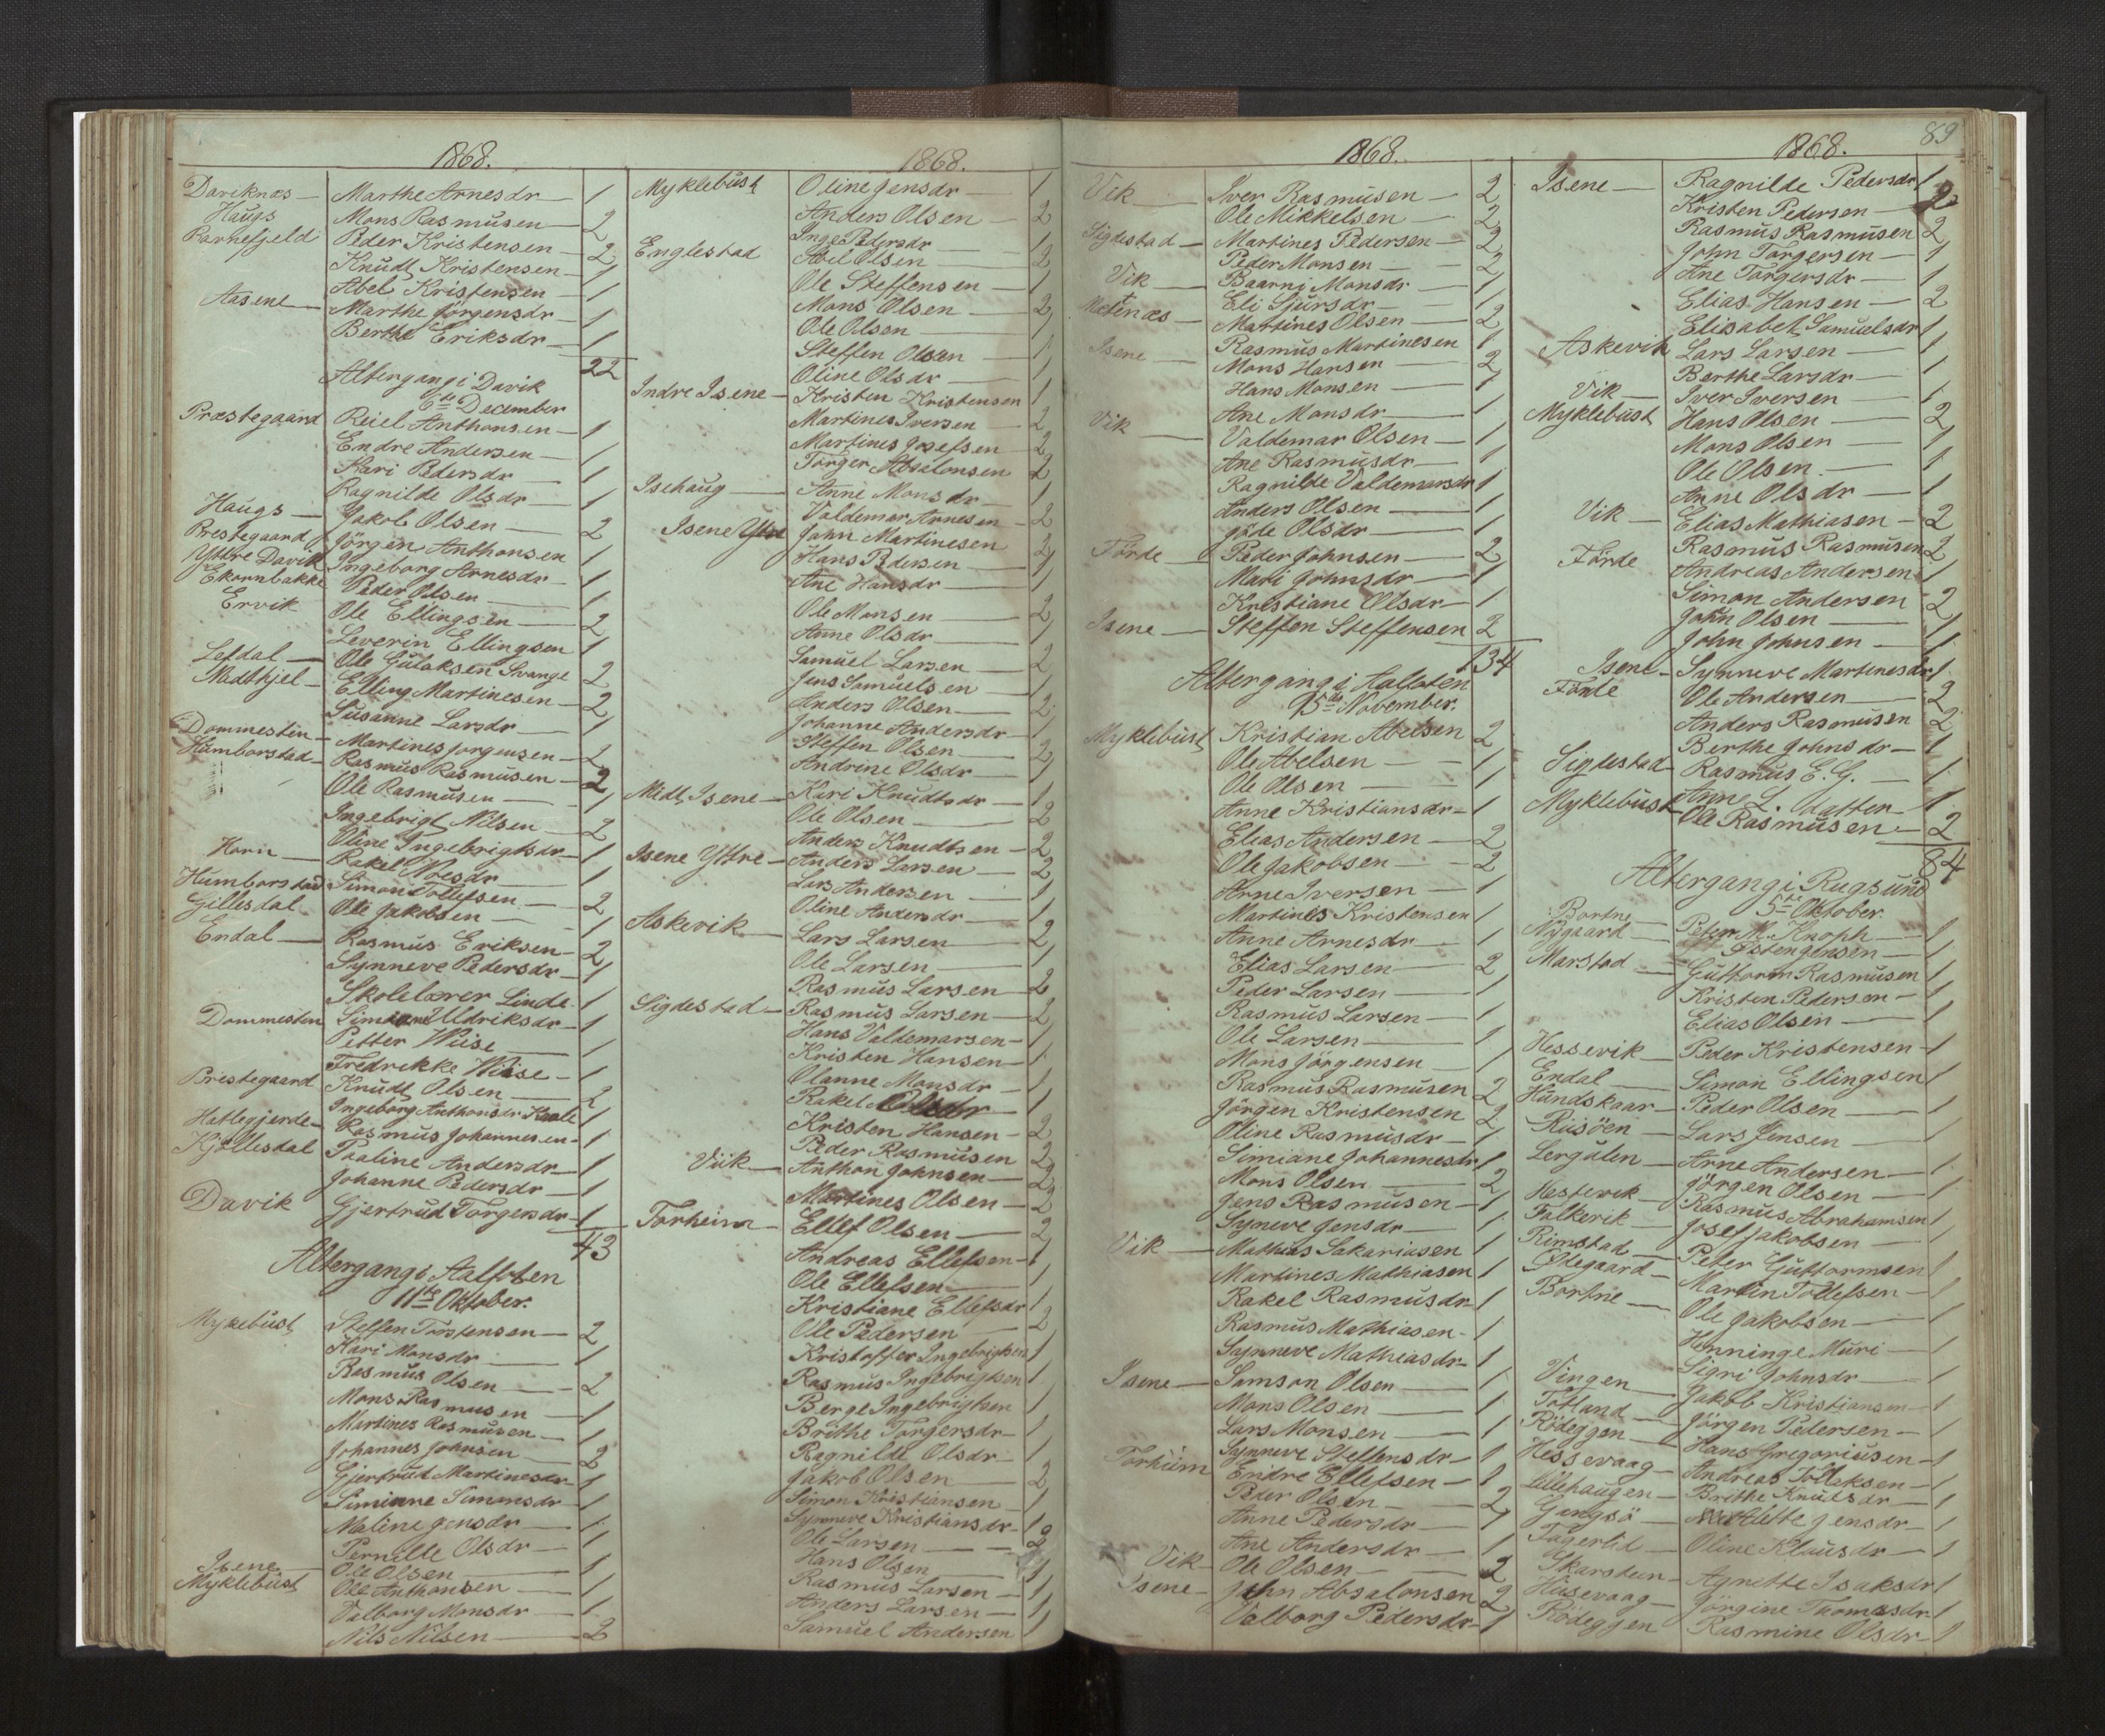 1868.
Daviknæs — Marthe Arnesdr — 1
Haugs Mons Rasmusen — 2
Ramefjeld Peder Kristensen — 2
Knudt Kristensen — 1
Abel Kristensen — 1
Aasene — Marthe Jörgensdr — 1
Berthe Eriksdr — 1
22
Altergang i Davik
6te December
Præstegaard Reiel Anthonsen — 1
Endre Andersen — 1
Kari Pedersdr — 1
Ragnilde Olsdr — 1
Haugs — Jakob Olsen — 2
Prestegaard Jörgen Anthonsen 1
Yttre Davik Ingeborg Arnesdr — 1
Ekornbakke Peder Olsen — 1
Ervik Ole Ellingsen — 2
Leverin Ellingsen 1
Lefdal — Ole Gulaksen Svange 2
Madthjel — Elling Martinesen — 2
Susanne Larsdr — 1
Dommestein — Martines Jorgensen — 2
Humborstad — Rasmus Rasmusen — 2
Ole Rasmusen — 1
Ingebrigt Nilsen — 2
Oline Ingebrigtsdr — 1
Horn — Rakel Noesdr — 1
Humborstad Simon Tollefsen — 2
Gillesdal Ole Jakobsen — 1
Endal — Rasmus Eriksen — 2
Synneve Pedersdr — 1
Skolelærer Linde 1
Dommesten Simiane Uldriksdr — 1
Petter Wiise — 1
Fredrikke Wiise — 1
Prestegaard Knudt Olsen — 2
Ingeborg Anthonsdr 1
Hatlegjerde — Rasmus Johannesen — 1
Kjöllesdal Paaline Andersdr — 1
Johanne Pedersdr — 1
Davik Gjertrud Torgersdr — 1
43
Altergang i Aalfoten
11te Oktober.
Myklebust Steffen Torstensen — 2
Kari Monsdr — 1
Rasmus Olsen — 2
Mons Rasmusen — 1
Martines Rasmusen — 1
Johannes Johnsen — 2
Gjertrud Martinesdr 1
Simiane Simonsdr — 1
Maline Jensdr — 1
Pernille Olsdr — 1
Isene — Ole Olsen — 1
Myklebust Ole Anthonsen — 1
Valborg Monsdr — 1
Nils Nilsen — 2
1868.
Myklebust Oline Jensdr — 1
Anders Olsen — 2
Inge Pedersdr 1
Englestad Abel Olsen — 2
Ole Steffensen — 1
Mons Olsen — 2
Ole Olsen — 1
Steffen Olsen — 1
Oline Olsdr — 1
Indre Isene — Kristen Kristensen 1
Martines Iversen — 2
Martines Josefsen — 2
Torger Absalonsen 2
Isehaug — Anne Monsdr — 1
Valdemar Arnesen — 2
Isene Ytre John Martinesen 2
Hans Pedersen — 1
Ane Hansdr — 1
Ole Monsen — 2
Anne Olsdr — 1
Samuel Larsen — 2
Jens Samuelsen — 1
Anders Olsen — 2
Johanne Andersdr — 1
Steffen Olsen — 2
Andrine Olsdr — 1
Midt Isene — Kari Knudtsdr — 1
Ole Olsen — 2
Anders Knudtsen — 2
Isene Yttre — Anders Larsen — 2
Lars Andersen — 1
Oline Andersdr — 1
Askevik — Lars Larsen — 2
Ole Larsen — 1
Rasmus Larsen — 2
Sigdestad — Rasmus Larsen — 2
Hans Valdemarsen — 1
Kristen Hansen — 1
Olanne Monsdr — 1
Rakel Olsdr — 1
Kristen Hansen — 2
Peder Rasmusen 2
Viik — Anthon Johnsen — 2
Martines Olsen — 2
Torheim — Ellef Olsen — 2
Andreas Ellefsen — 1
Ole Ellefsen — 1
Kristiane Ellefsdr 1
Ole Pedersen — 2
Kristoffer Ingebrigtsen 1
Rasmus Ingebrigtsen 1
Berge Ingebrigtsen 1
Brithe Torgersdr — 1
Ragnilde Olsdr — 1
Jakob Olsen — 2
Simon Kristiansen — 1
Synneve Kristiansdr — 1
Ole Larsen — 2
Hans Olsen — 1
Rasmus Larsen — 1
Anders Larsen — 1
Samuel Andersen 1
1868.
Vik — Iver Rasmusen — 2
Ole Mikkelsen — 2
Sigdestad — Martines Pedersen — 2
Peder Monsen — 2
Vik — Baarni Monsdr — 1
Metenæs — Eli Sjursdr — 1
Martines Olsen — 2
Isene — Rasmus Martinesen 1
Mons Hansen — 2
Hans Monsen — 1
Vik — Ane Monsdr — 1
Valdemar Olsen — 1
Ane Rasmusdr — 1
Ragnilde Valdemarsdr 1
Anders Olsen — 1
Jöde Olsdr — 1
Förde — Peder Johnsen — 2
Mari Johnsdr — 1
Kristiane Olsdr — 1
Isene — Steffen Steffensen 2
134
Altergang i Aalfoten
15te November.
Myklebust Kristian Abelsen 2
Ole Abelsen — 1
Ole Olsen — 1
Anne Kristiansdr — 1
Elias Andersen — 2
Ole Jakobsen — 2
Arne Iversen — 1
Martines Kristensen 1
Anne Arnesdr — 1
Elias Larsen — 2
Peder Larsen — 1
Rasmus Larsen — 1
Ole Larsen — 1
Mons Jörgensen 1
Rasmus Rasmusen 2
Jörgen Kristensen 2
Oline Rasmusdr — 1
Simiane Johannesdr 1
Mons Olsen — 2
Jens Rasmusen — 1
Syneve Jensdr — 1
Vik — Mathias Sakariasen 1
Martines Mathiasen 1
Rakel Rasmusdr — 1
Rasmus Mathiasen — 1
Synneve Mathiasdr — 1
Isene — Samson Olsen — 1
Mons Olsen — 1
Lars Monsen — 1
Synneve Steffensdr — 1
Torheim Endre Ellefsen — 1
Peder Olsen — 2
Anne Pedersdr — 1
Ane Andersdr — 1
Vik — Ole Olsen — 2
Isene — John Absalonsen 2
Valborg Pedersdr — 1
1868. 89
Isene — Ragnilde Pedersdr 1
Kristen Pedersen — 2
Rasmus Rasmusen 2
John Torgersen — 1
Ane Torgersdr — 1
Elias Hansen — 2
Elisabet Samuelsdr 1
Askevik Lars Larsen — 1
Berthe Larsdr — 1
Vik — Iver Iversen — 1
Myklebust Hans Olsen — 2
Mons Olsen — 1
Ole Olsen — 1
Anne Olsdr — 1
Vik — Elias Mathiasen — 2
Rasmus Rasmusen 2
Förde Andreas Andersen 1
Simon Andersen 2
John Olsen — 1
John Johnsen — 1
Isene — Synneve Martinesdr 1
Förde Ole Andersen — 2
Anders Rasmusen 2
Berthe Johnsdr — 1
Sigdestad — Rasmus E. G. — 1
Myklebust Anne L. datter 1
Ole Rasmusen — 2
84
Altergang i Rugsund
5te Oktober.
Bortne — Peter M. Knoph — 1
Nygaard — Ysten Jensen — 1
Marstad — Guttorm Rasmusen 1
Kristen Pedersen — 1
Elias Olsen — 1
Hessevik — Peder Kristensen — 1
Endal — Simon Ellingsen 1
Hundskaar — Peder Olsen — 1
Rusöen — Lars Jensen — 1
Lergulen — Arne Andersen — 1
Jörgen Olsen — 1
Hestevik — Rasmus Abrahamsen 1
Falkevik — Josef Jakobsen — 1
Rimstad — Peter Guttormsen 1
Ödegaard — Martin Tollefsen — 1
Bortne — Ole Jakobsen — 1
Henninge Muri — 1
Sigri Johnsdr — 1
Vingen — Jakob Kristiansen — 1
Totland — Jörgen Pedersen — 1
Rödeggen — Hans Gregoriusen — 1
Hessevaag — Andreas Tollaksen — 1
Lillehaugen — Brithe Knutsdr — 1
Gangsö — Mallette Jensdr — 1
Fagerlid — Oline Klausdr — 1
Skarstein — Agnette Isaksdr 1
Husevaag — Jörgine Thomasdr 1
Rödeggen Rasmine Olsdr — 1